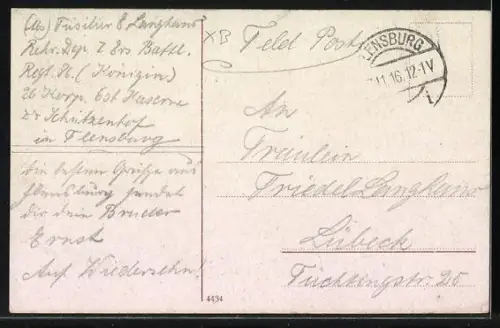 (Abs) Füsilier E. Langhans
Rekr. Dep. I Ers Battl.
Regt. K. (Königin)
26 Korp. bst Kaserne
zr Schützenhof
in Flensburg
Die besten Grüße aus
Flensburg sendet
dir dein Bruder
Ernst
Auf Wiedersehn!
XB Feld Post
FLENSBURG
11.16.12-1V
An
Fräulein
Friedel Langhans
Lübeck
Füchtingstr. 25
4434